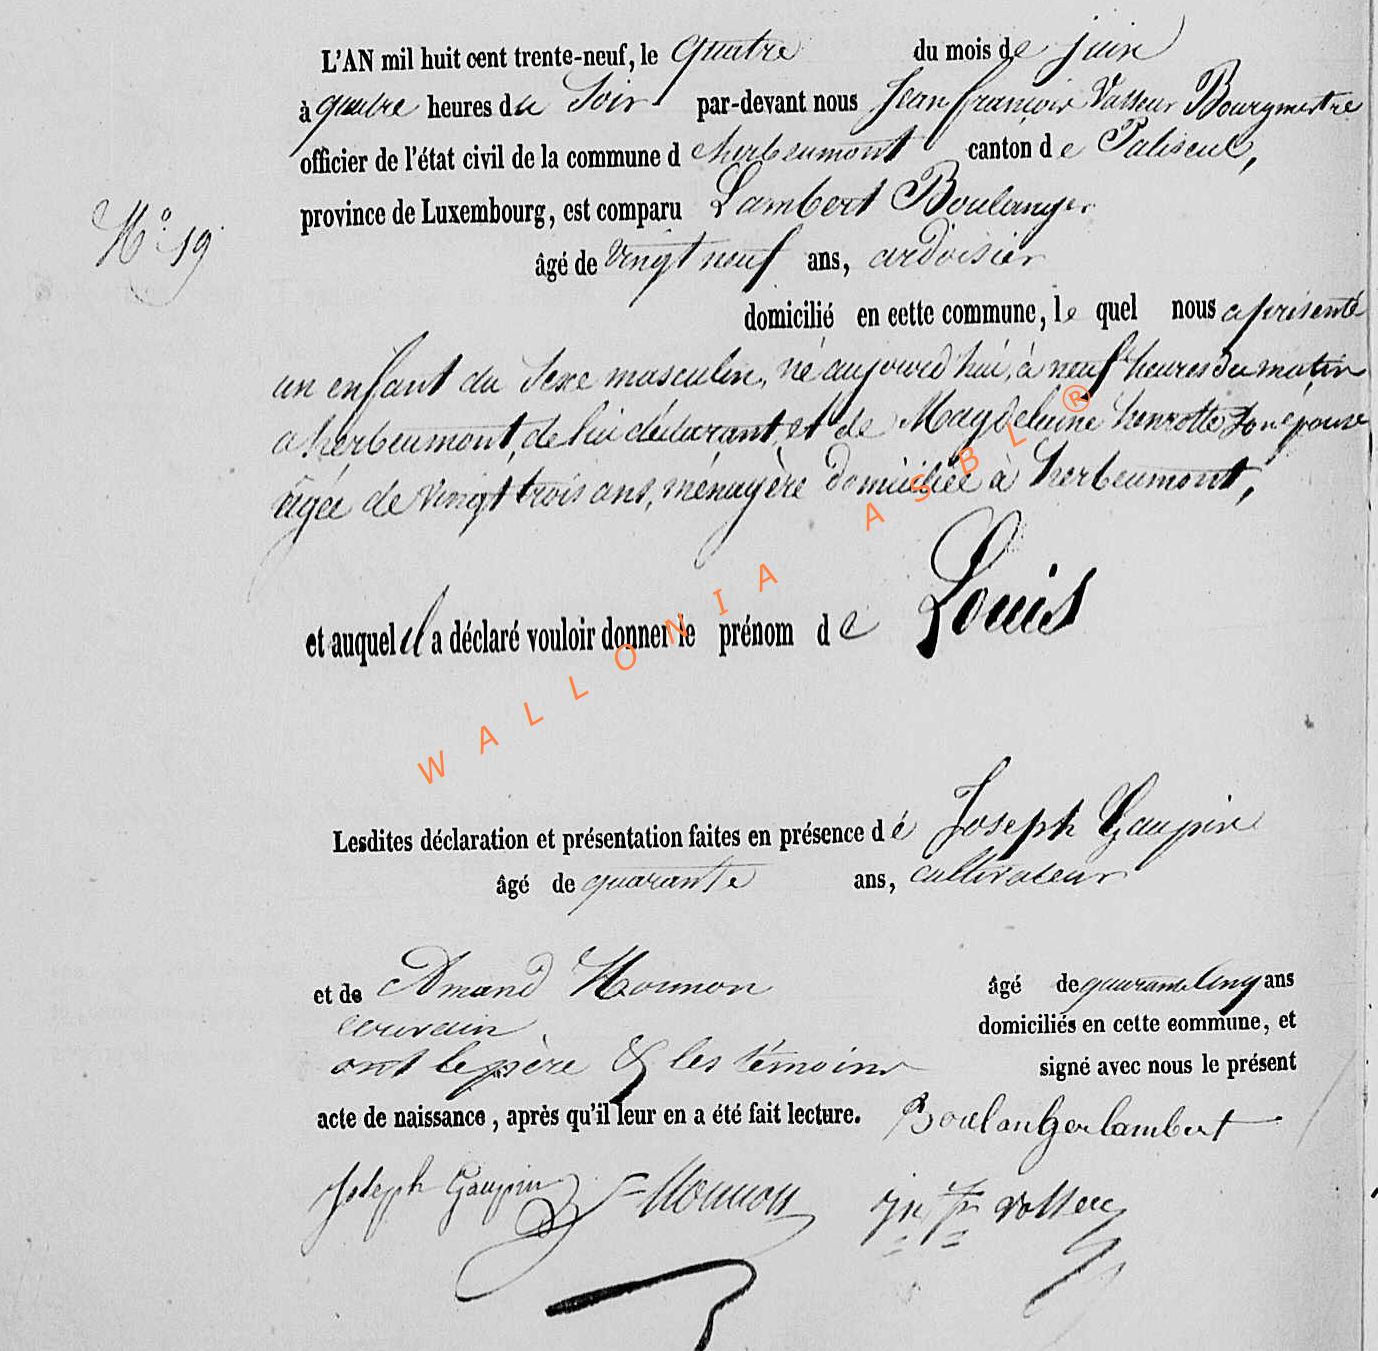 L'AN mil huit cent trente-neuf, le quatre du mois de juin
à quatre heures du Soir par-devant nous Jean françois Vasseur Bourgmestre
officier de l'état civil de la commune d'herbeumont canton de Paliseul,
province de Luxembourg, est comparu Lambert Boulanger
N.o 19
âgé de vingt neuf ans, ardoisier
domicilié en cette commune, le quel nous a présenté
un enfant du sexe masculin, né aujourd'hui, à neuf heures du matin
a herbeumont, de lui déclarant, et de Magdeleine henrotte son épouse
âgée de vingt trois ans, ménagère domiciliée à herbeumont,
et auquel il a déclaré vouloir donner le prénom de Louis
WALLONIA ASBL ®
Lesdites déclaration et présentation faites en présence de Joseph Gaupin
âgé de quarante ans, cultivateur
et de Amand Mounon âgé de quarante cinq ans
domiciliés en cette commune, et
ont le père & les témoins signé avec nous le présent
acte de naissance, après qu'il leur en a été fait lecture. Boulanger lambert
Joseph Gaupin